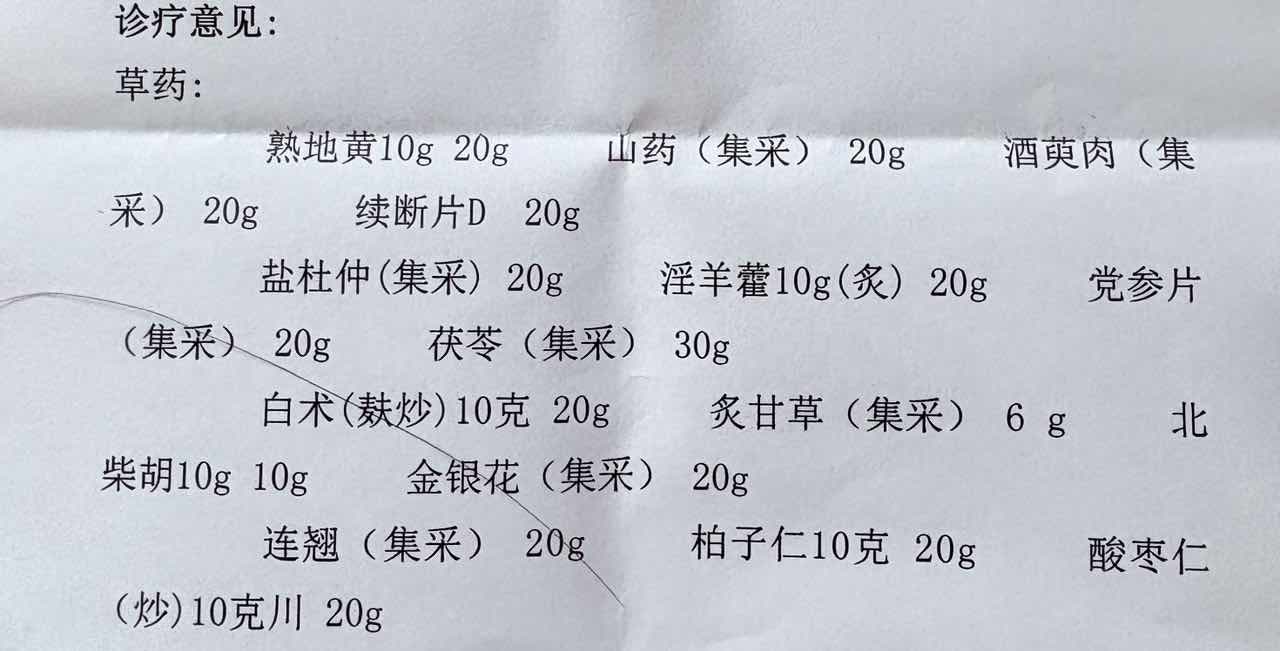 诊疗意见:
草药:
熟地黄10g 20g 山药（集采） 20g 酒萸肉（集
采） 20g 续断片D 20g
盐杜仲(集采) 20g 淫羊藿10g(炙) 20g 党参片
（集采） 20g 茯苓（集采） 30g
白术(麸炒)10克 20g 炙甘草（集采） 6 g 北
柴胡10g 10g 金银花（集采） 20g
连翘（集采） 20g 柏子仁10克 20g 酸枣仁
（炒)10克川 20g